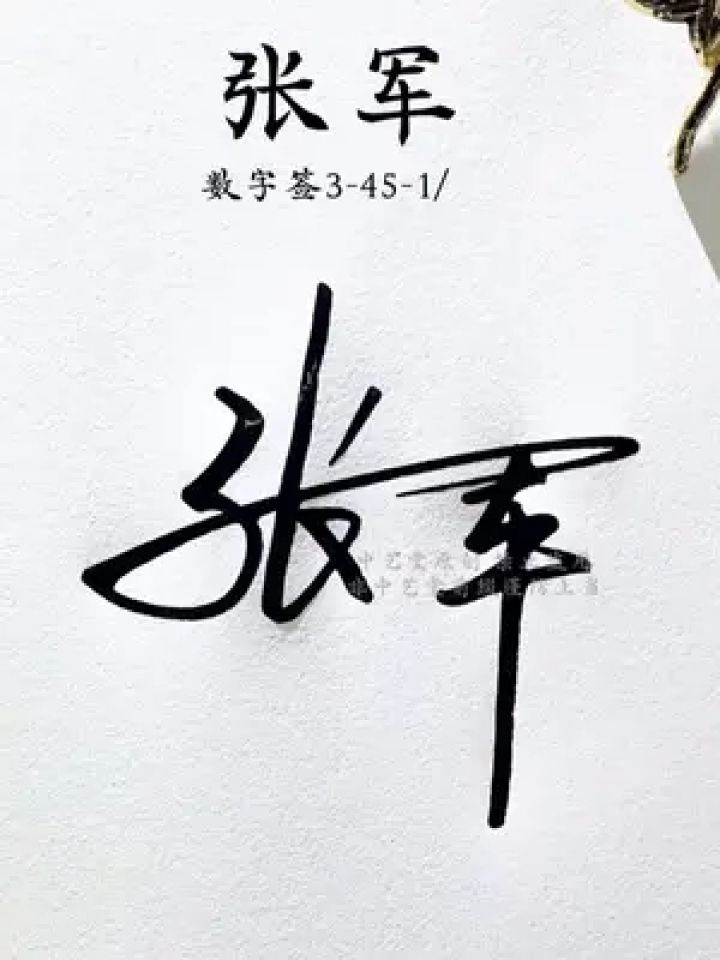 张军
数字签3-45-1/
张军